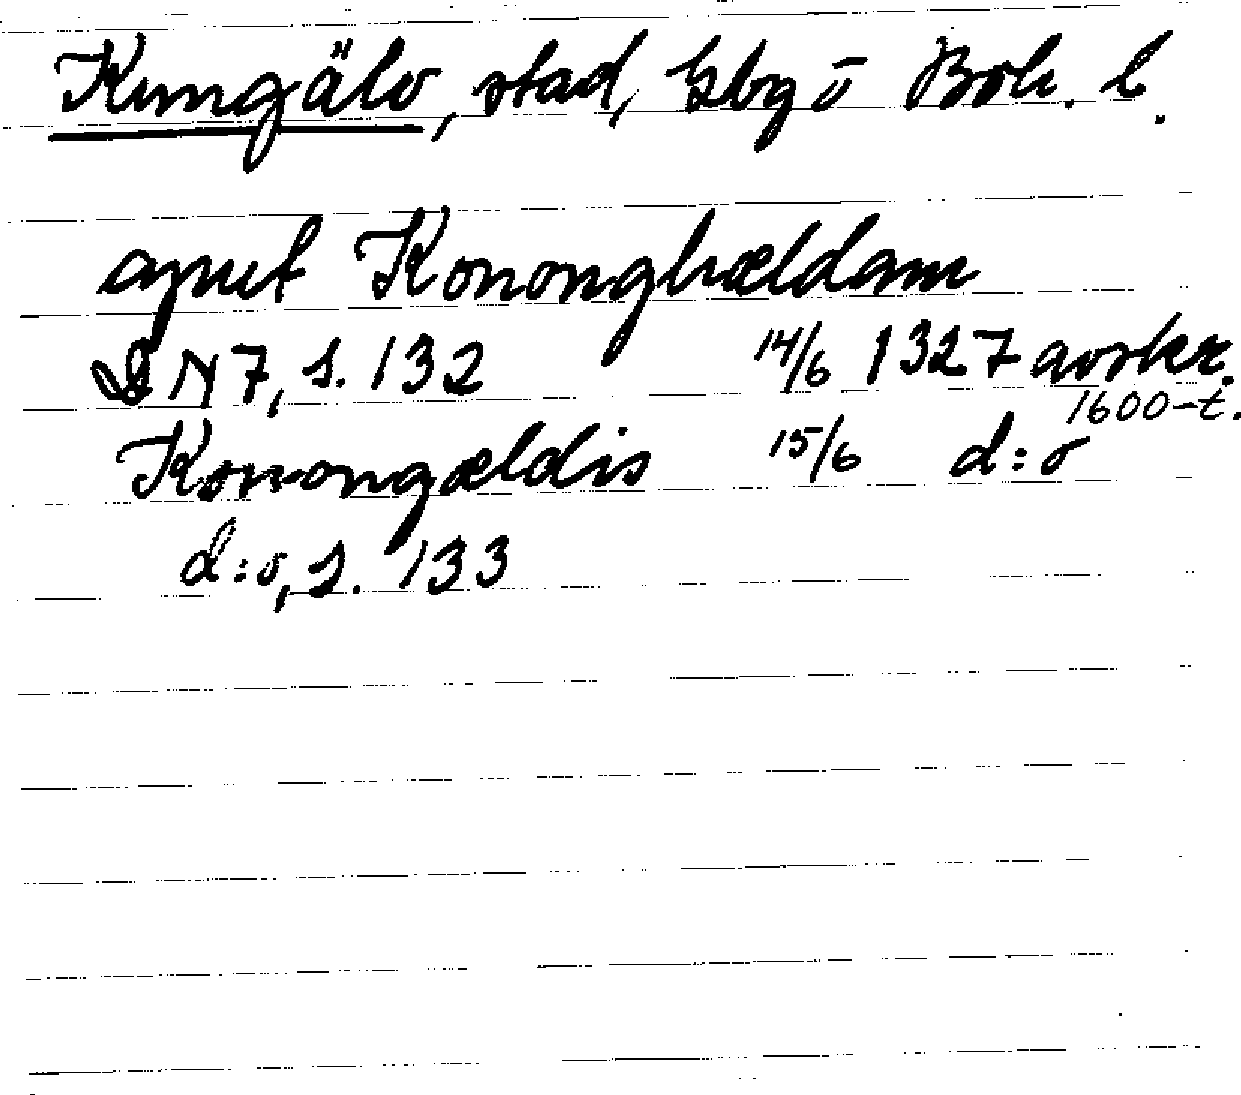 Kungälv, stad, Gbg o Boh. l.
aput Kononghældam
DN 7, s. 132 14/6 1327 avskr.
1600-t.
Konongældis 15/6 d:o
d:o, s. 133